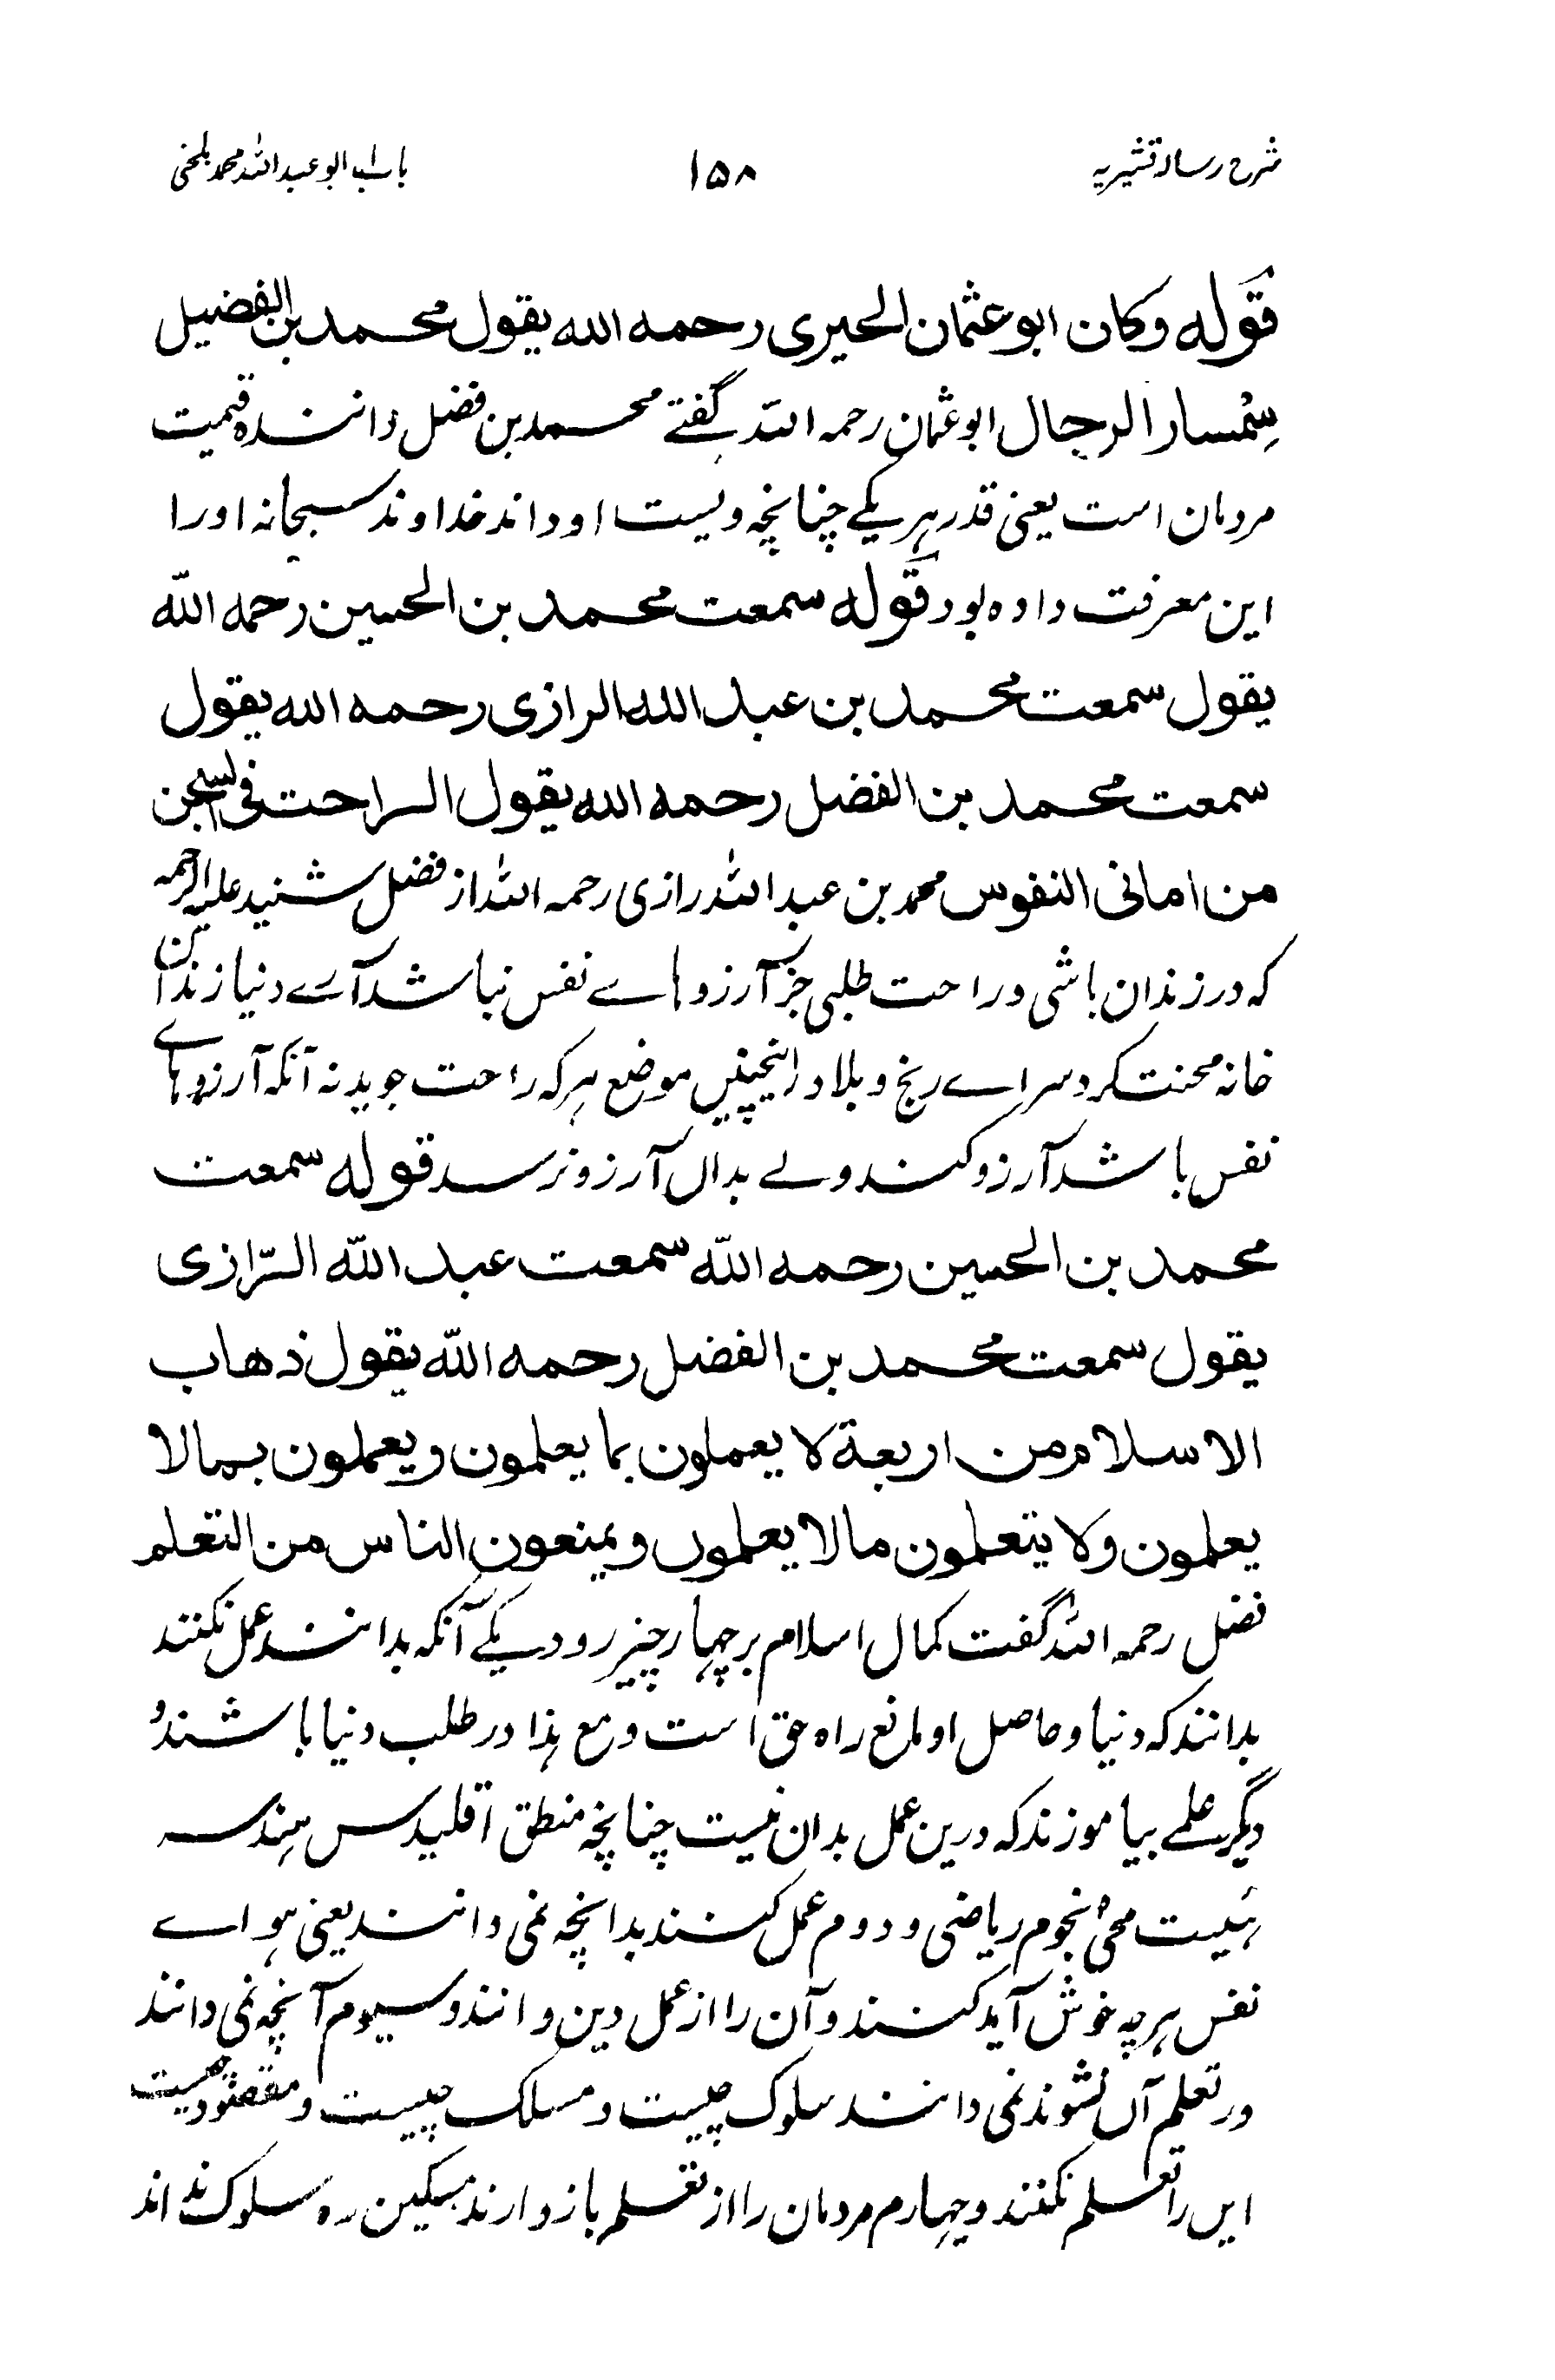 شرح رسالہ قشیریہ ۱۵۸ باب ابو عبد اللہ محمد بلخی
قوله وکان ابو عثمان الحیری رحمه الله یقول محمد بن الفضیل
سِمْسار الرجال ابو عثمان رحمه الله گفتے محمد بن فضل دانندہ قیمت
مردمان است یعنی قدر ہر یکے چنانچہ ویست او داند خداوند سبحانہ اورا
این معرفت دادہ بود قوله سمعت محمد بن الحسین رحمه الله
یقول سمعت محمد بن عبد الله الرازی رحمه الله یقول
سمعت محمد بن الفضل رحمه الله یقول الراحت فی السجن
من امانی النفوس محمد بن عبد اللہ رازی رحمہ اللہ از فضل شنید علیہ الرحمہ
کہ در زندان باشی و راحت طلبی جز آرزوہاے نفس نباشد آرے دنیا زندان
خانہ محنت کر دسراے رنج و بلا در اینچنیں موضع ہر کہ راحت جوید نہ آنکہ آرزوہاے
نفس باشد آرزو کند ولے بداں آرزو نرسد قوله سمعت
محمد بن الحسین رحمه الله سمعت عبد الله الرّازی
یقول سمعت محمد بن الفضل رحمه الله یقول ذهاب
الاسلام من اربعة لا یعملون بما یعلمون ویعملون بمالا
یعلمون ولا یتعلمون مالا یعلموں ویمنعون الناس من التعلم
فضل رحمہ اللہ گفت کمال اسلام بر چہار چیز رود یکے آنکہ بدانند عمل نکنند
بدانند کہ دنیا و حاصل او مانع راہ حق است و مع ہذا در طلب دنیا باشند و
دیگر علمے بیاموزند کہ درین عمل بدان نیست چنانچہ منطق اقلیدس ہندسہ
ہئیت نجوم ریاضی و دوم عمل کنند بدانچہ نمی دانند یعنی ہواے
نفس ہر چہ خوش آید کنند و آن را از عمل دین دانند و سیوم آنچہ نمی دانند
در تعلم آں نشوند نمی دانند سلوک چیست و مسلک چیست و مقصود چیست
ایں را تعلم نکنند و چہارم مردمان را از تعلم باز دارند مسکین رہ سلوک نداند